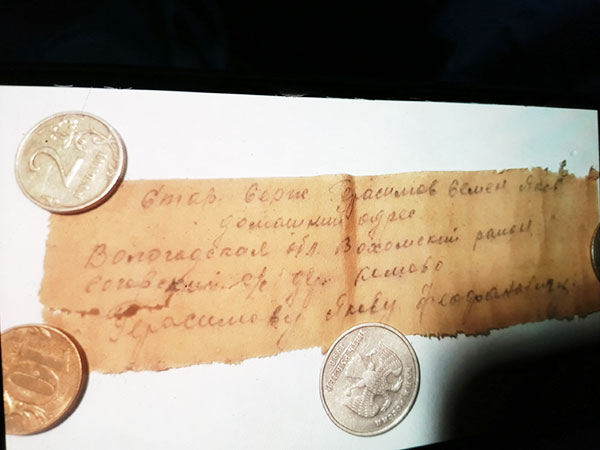 Стар. Серж. Герасимов Семен Яков
домашний адрес
Вологодская обл. Вохомский район
с/с д. Кемово
Герасимову Якову Феофановичу
2
10